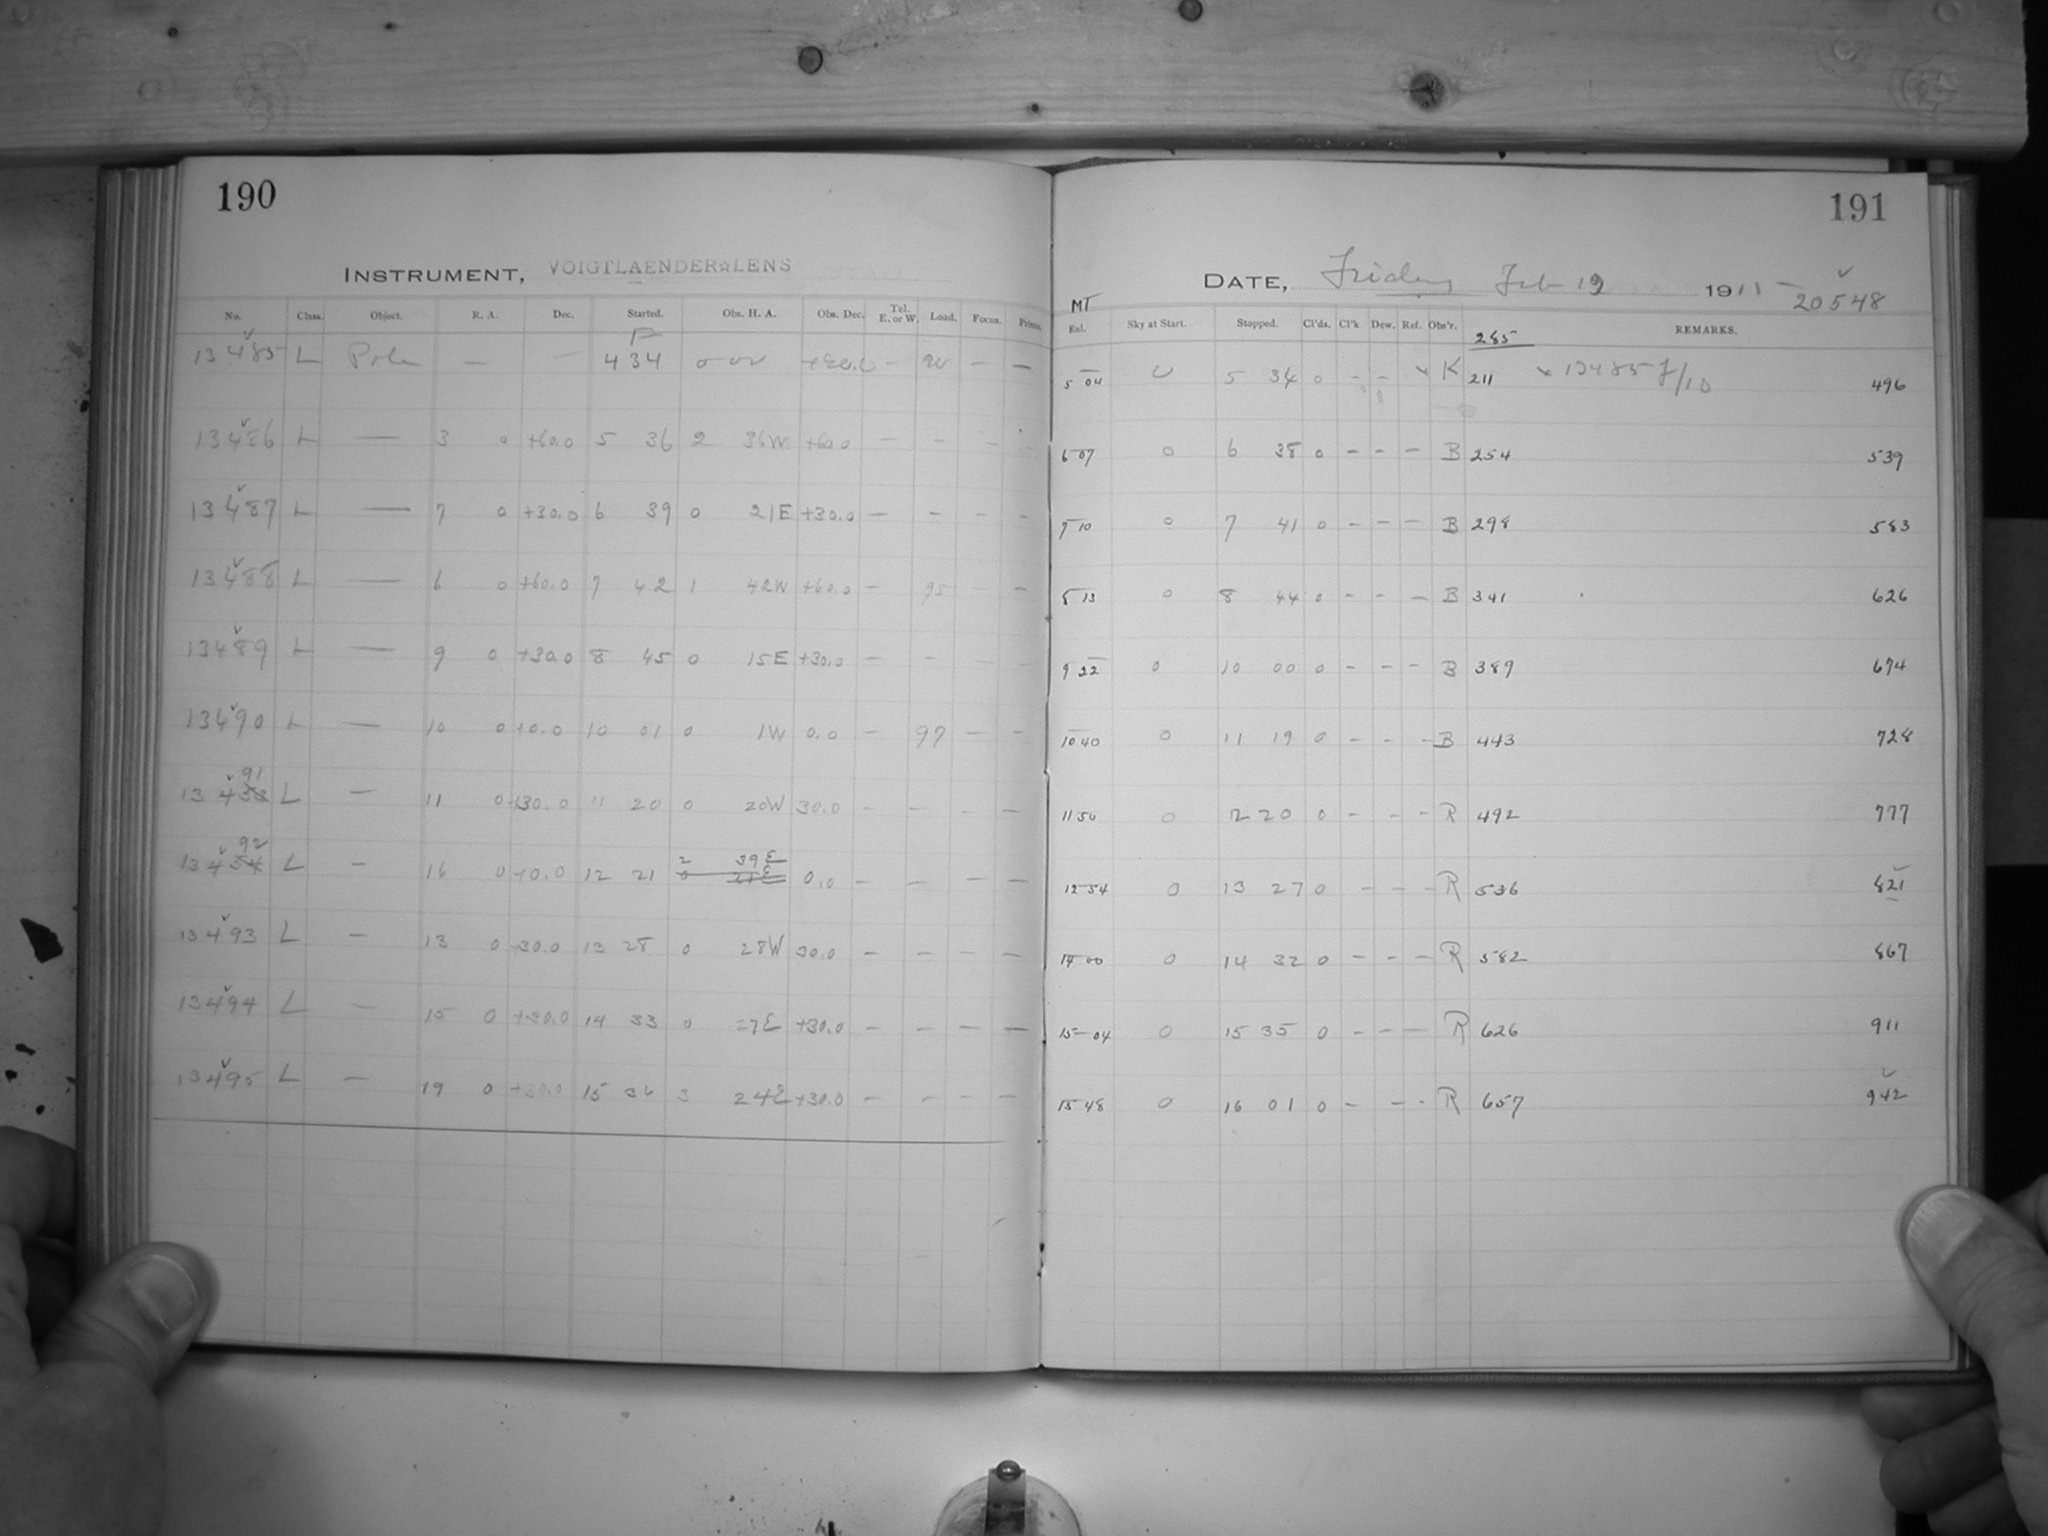 190
INSTRUMENT, VOIGTLAENDER LENS
No. Class. Object. R. A. Dec. Started. Obs. H. A. Obs. Dec. Tel. E. or W. Load. Focus. Prisms.
13485 L Pole — — 4 34 0 00 — 90 — —
13486 L — 3 0 +60.0 5 36 2 36W +60.0 — — — -
13487 L — 7 0 +30.0 6 39 0 21E +30.0 — - - -
13488 L — 6 0 +60.0 7 42 1 42W +60.0 — 95 - -
13489 L — 9 0 +30.0 8 45 0 15E +30.0 — - - -
13490 L — 10 0 +0.0 10 01 0 1W 0.0 — 97 - -
91
13 433 L — 11 0 +30.0 11 20 0 20W 30.0 — — - —
92 2 39E
13 434 L — 16 0 +0.0 12 21 0 21E 0.0 — — — —
13493 L — 13 0 30.0 13 28 0 28W 30.0 — — — —
13494 L — 15 0 +30.0 14 33 0 27E +30.0 — — — —
13495 L — 19 0 +30.0 15 36 3 24E +30.0 — — — —
191
DATE, Friday Feb 19 1915
20548
MT
Eql. Sky at Start. Stopped. Cl'ds. Cl'k Dew. Ref. Obs'r. REMARKS.
285
5 04 0 5 34 0 - - x K 211 x 13485 f/10 496
6 07 0 6 38 0 - - - B 254 539
7 10 0 7 41 0 - - - B 298 583
8 13 0 8 44 0 - - - B 341 626
9 22 0 10 00 0 - - - B 389 674
10 40 0 11 19 0 - - - B 443 728
11 50 0 12 20 0 - - - R 492 777
12 54 0 13 27 0 - - - R 536 821
14 00 0 14 32 0 - - - R 582 867
15 04 0 15 35 0 - - - R 626 911
15 48 0 16 01 0 - - - R 657 942